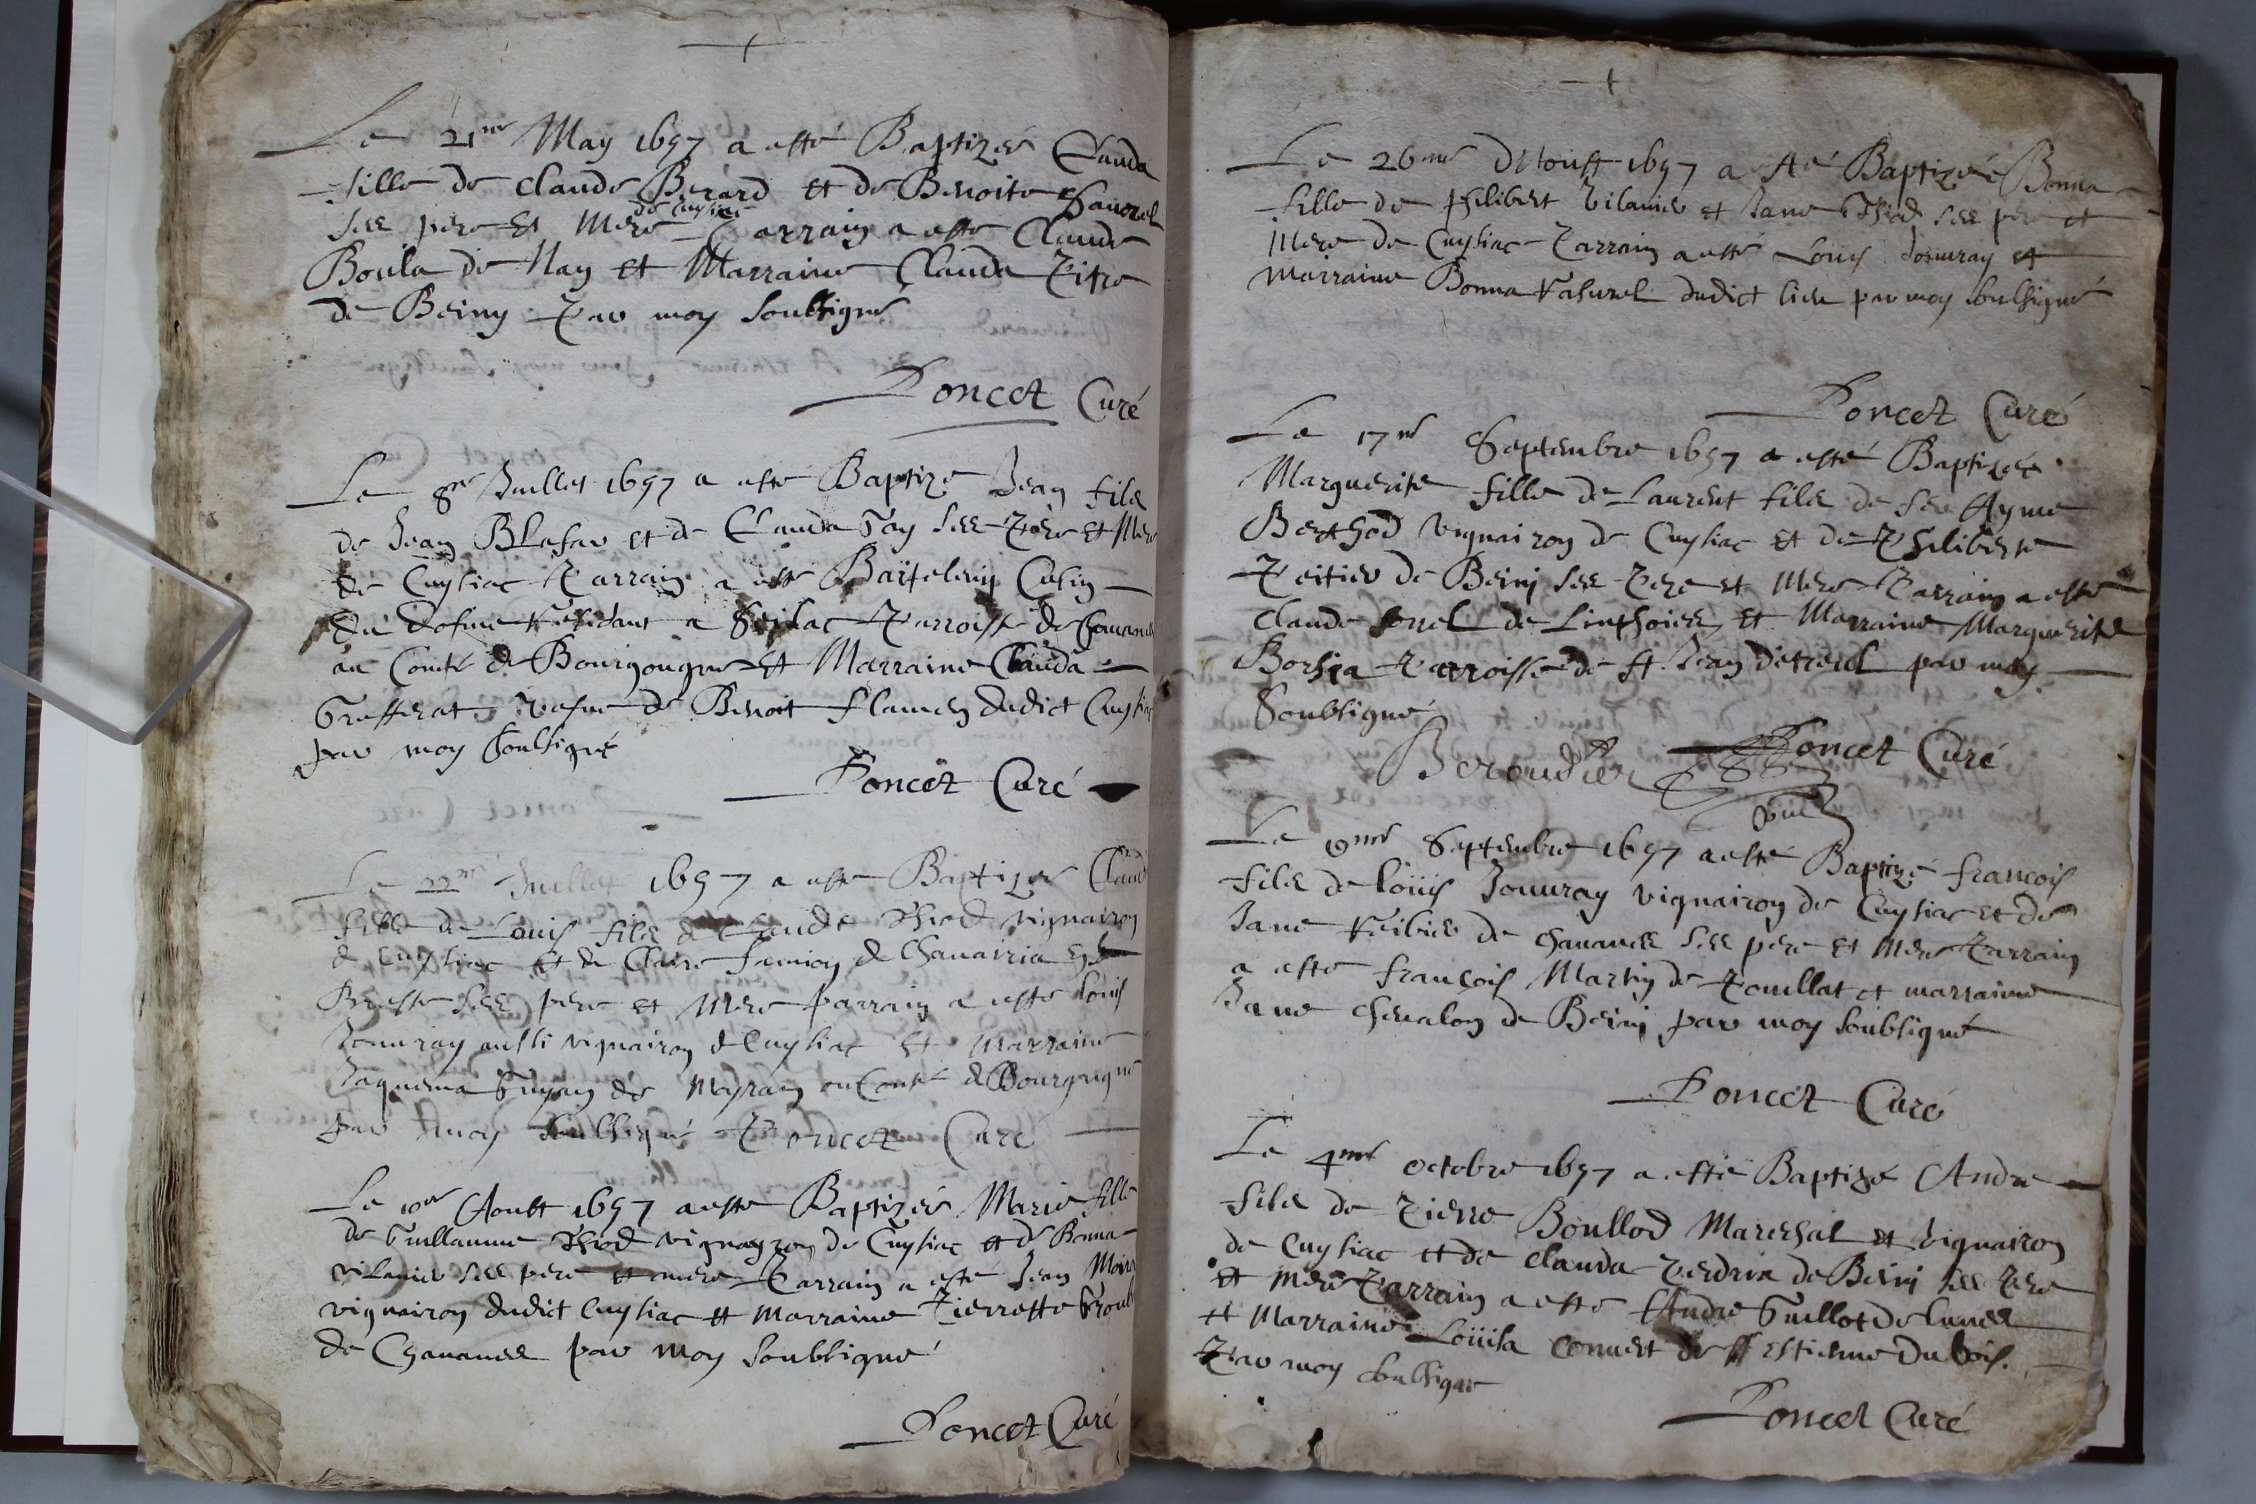 Le 21me May 1657 a esté Baptizée Clauda
fille de Claude Berard et de Benoite
ses pere Et Mere de Cuysiac Parrain a esté Claude
Boula de Nay et Marraine Clauda Pitre
de Beiny Par moy soubsigné
Poncet Curé
Le 8me Juillet 1657 a esté Baptizé Jean filz
de Jean et de Clauda ses Pere et Mere
de Cuysiac Parrain a esté Cusin
a Parroisse de
au Comté de Bourgougne Et Marraine Clauda
vefve de Benoit dudict Cuysiac
par moy soubsigné
Poncet Curé
Le 22me Juillet 1657 a esté Baptizée
fille de Louis filz de Claude Thiod vignairon
de Cuysiac et de Claire de Chanairia en
Bresse ses pere et Mere parrain a esté Louis
Jouuray aussi vignairon de Cuysiac Et Marraine
Jaquema Guyan de au Comté de Bourgougne
par moy soubsigné Poncet Curé
Le 10me Aoust 1657 a esté Baptizée Marie fille
de Guillaume Thiod vignayron de Cuysiac et de Bonna
Vilanier ses pere et mere Parrain a esté Jean
vignairon dudict Cuysiac et Marraine Pierrette
de Chananes par moy soubsigné
Poncet Curé
Le 26me D'Aoust 1657 a esté Baptizée Bonna
fille de Philibert Vilanier et Jane Thiod ses pere et
Mere de Cuysiac Parrain a esté Louis Jouuray et
Marraine Bonna dudict lieu par moy soubsigné
Poncet Curé
Le 17me Septembre 1657 a esté Baptizée
Marguerite fille de Laurent filz de feu Ayme
Berthod vignairon de Cuysiac et de Philiberte
Peitier de Beini ses Pere et Mere Parrain a esté
Claude de et Marraine Marguerite
Parroisse de St Jean d'etreul par moy
Soubsigné
Beroudier Poncet Curé
Le Septembre 1657 a esté Baptizé François
filz de Loüis Jouuray vignairon de Cuysiac et de
Jane de Chananes ses pere et Mere Parrain
a esté François Martin de Pouillat et marraine
Jane Cheualon de Beini par moy soubsigné
Poncet Curé
Le 4me Octobre 1657 a esté Baptizé Andre
filz de Pierre Boullod Mareschal et vignairon
de Cuysiac et de Clauda Perdrix de Beini ses Pere
et Mere Parrain a esté Andre Guillot de
et Marraine Loüisa Conuert de St Estienne du bois
Par moy soubsigné
Poncet Curé